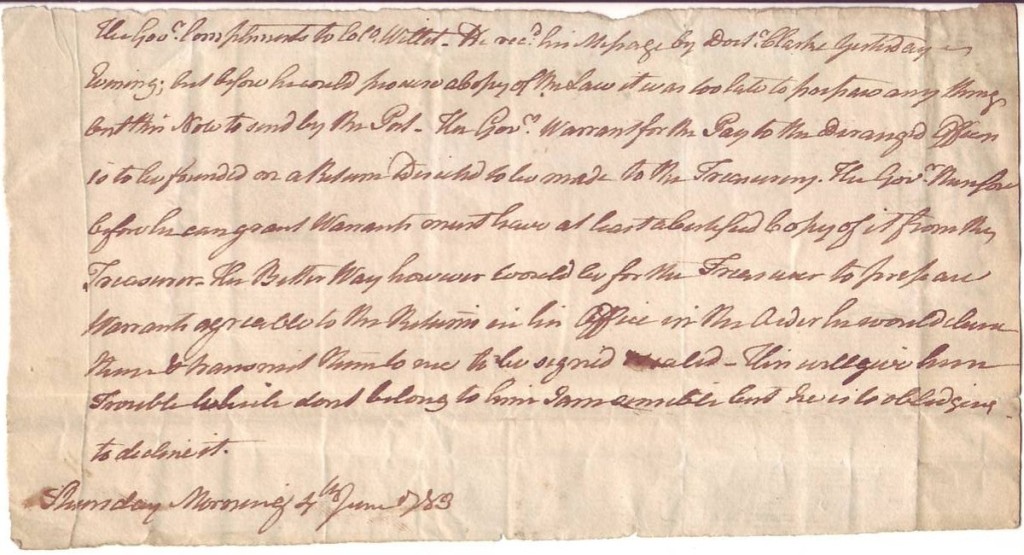 The Govr. Compliments to Colo. Willet - He recd. his Message by Doctr. Clarke Yesterday
Evening; but before he could procure a Copy of the Law it was too late to prepare any thing
but this Note to send by the Post - The Govrs. Warrant for the Pay to the Deranged Officers
is to be founded on a Return Directed to be made to the Treasurey. The Govr. therefore
before he can grant Warrants must have at least a Certified Copy of it from the
Treasurer - The Better Way however would be for the Treasurer to prepare
Warrants agreable to the Returns in his Office in the Order he would chuse
them & transmit them to me to be signed & sealed - This will give him
Trouble which dont belong to him I am sensible but he is too obledging
to decline it.
Morning 4th June 1783